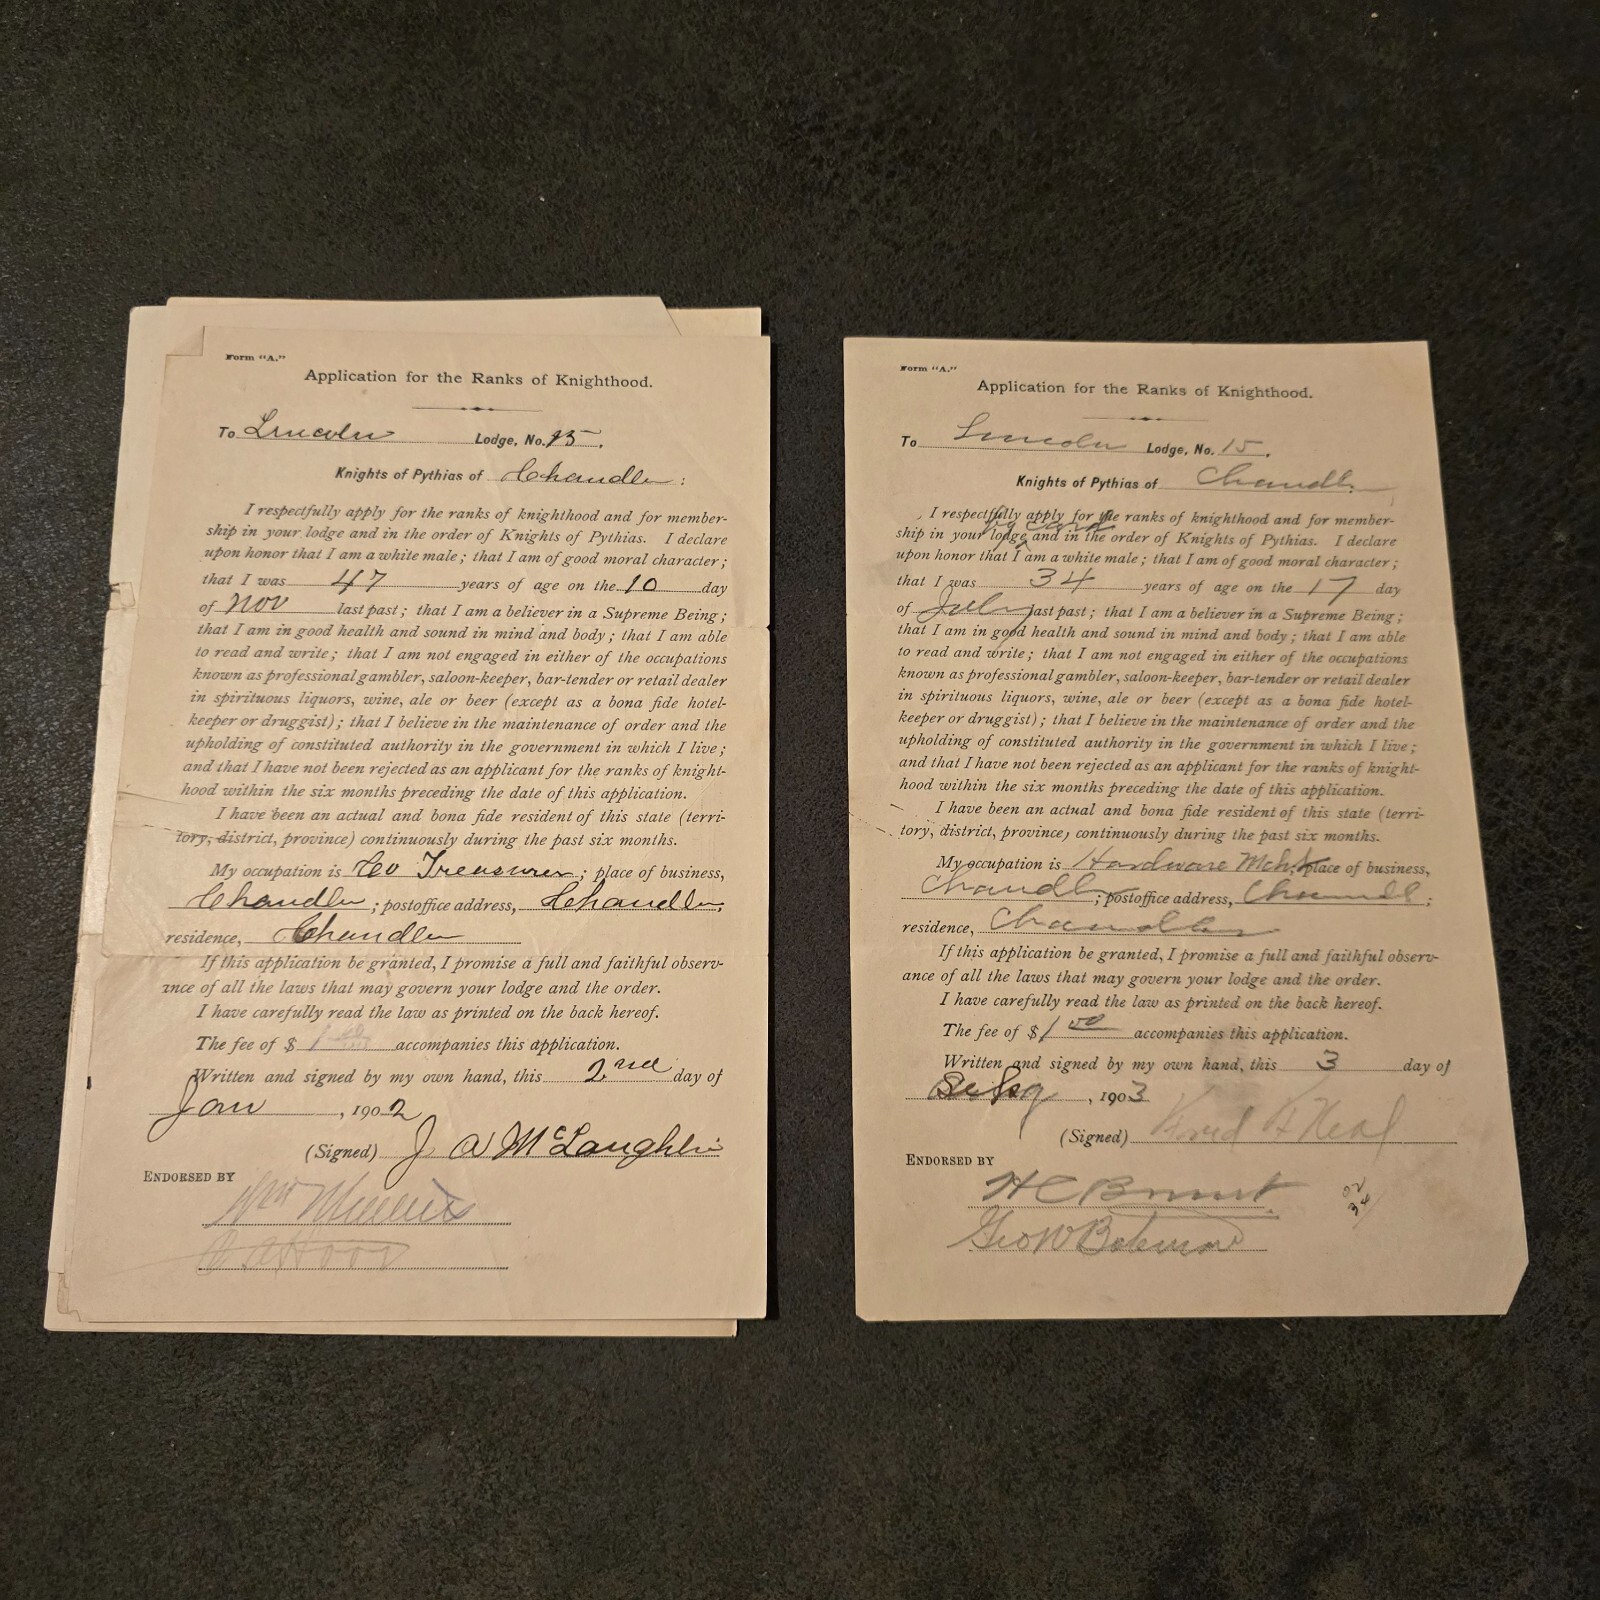 Form "A."
Application for the Ranks of Knighthood.
To Lincoln Lodge, No. 15.
Knights of Pythias of Chandler:
I respectfully apply for the ranks of knighthood and for member-
ship in your lodge and in the order of Knights of Pythias. I declare
upon honor that I am a white male; that I am of good moral character;
that I was 47 years of age on the 10 day
of Nov last past; that I am a believer in a Supreme Being;
that I am in good health and sound in mind and body; that I am able
to read and write; that I am not engaged in either of the occupations
known as professional gambler, saloon-keeper, bar-tender or retail dealer
in spirituous liquors, wine, ale or beer (except as a bona fide hotel-
keeper or druggist); that I believe in the maintenance of order and the
upholding of constituted authority in the government in which I live;
and that I have not been rejected as an applicant for the ranks of knight-
hood within the six months preceding the date of this application.
I have been an actual and bona fide resident of this state (terri-
tory, district, province) continuously during the past six months.
My occupation is Co Treasurer; place of business,
Chandler; postoffice address, Chandler;
residence, Chandler
If this application be granted, I promise a full and faithful observ-
ance of all the laws that may govern your lodge and the order.
I have carefully read the law as printed on the back hereof.
The fee of $ 1 00 accompanies this application.
Written and signed by my own hand, this 2nd day of
Jan, 1902
(Signed) J A McLaughlin
ENDORSED BY
Form "A."
Application for the Ranks of Knighthood.
To Lincoln Lodge, No. 15.
Knights of Pythias of Chandler:
I respectfully apply for the ranks of knighthood and for member-
ship in your lodge and in the order of Knights of Pythias. I declare
upon honor that I am a white male; that I am of good moral character;
that I was 34 years of age on the 17 day
of July last past; that I am a believer in a Supreme Being;
that I am in good health and sound in mind and body; that I am able
to read and write; that I am not engaged in either of the occupations
known as professional gambler, saloon-keeper, bar-tender or retail dealer
in spirituous liquors, wine, ale or beer (except as a bona fide hotel-
keeper or druggist); that I believe in the maintenance of order and the
upholding of constituted authority in the government in which I live;
and that I have not been rejected as an applicant for the ranks of knight-
hood within the six months preceding the date of this application.
I have been an actual and bona fide resident of this state (terri-
tory, district, province) continuously during the past six months.
My occupation is Hardware Mcht; place of business,
Chandler; postoffice address, Chandler;
residence, Chandler
If this application be granted, I promise a full and faithful observ-
ance of all the laws that may govern your lodge and the order.
I have carefully read the law as printed on the back hereof.
The fee of $1 00 accompanies this application.
Written and signed by my own hand, this 3 day of
, 1903
(Signed) Fred F Neal
ENDORSED BY
H C
Geo W
02
34